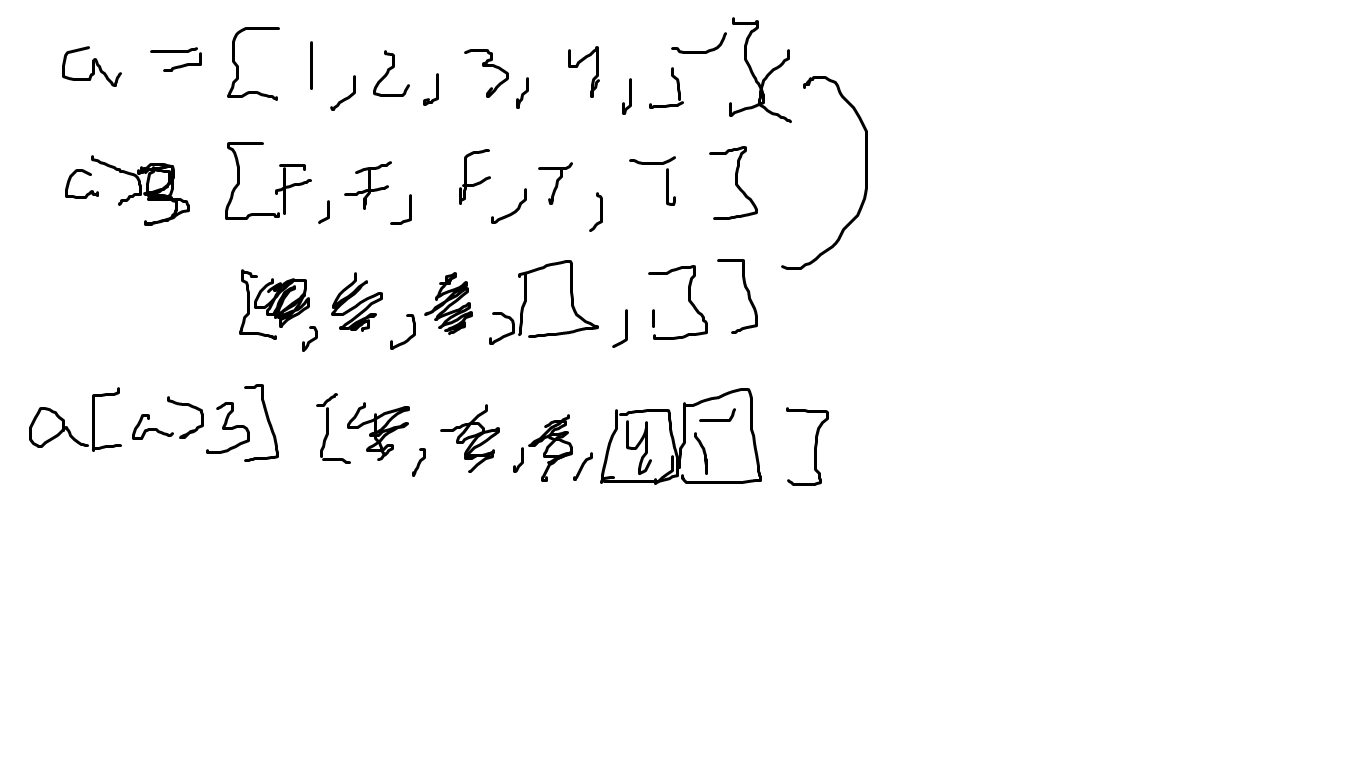 a = [1, 2, 3, 4, 5]
a>3 [F, F, F, T, T]
[ , , , , ]
a[a>3] [ , , , 4 5 ]